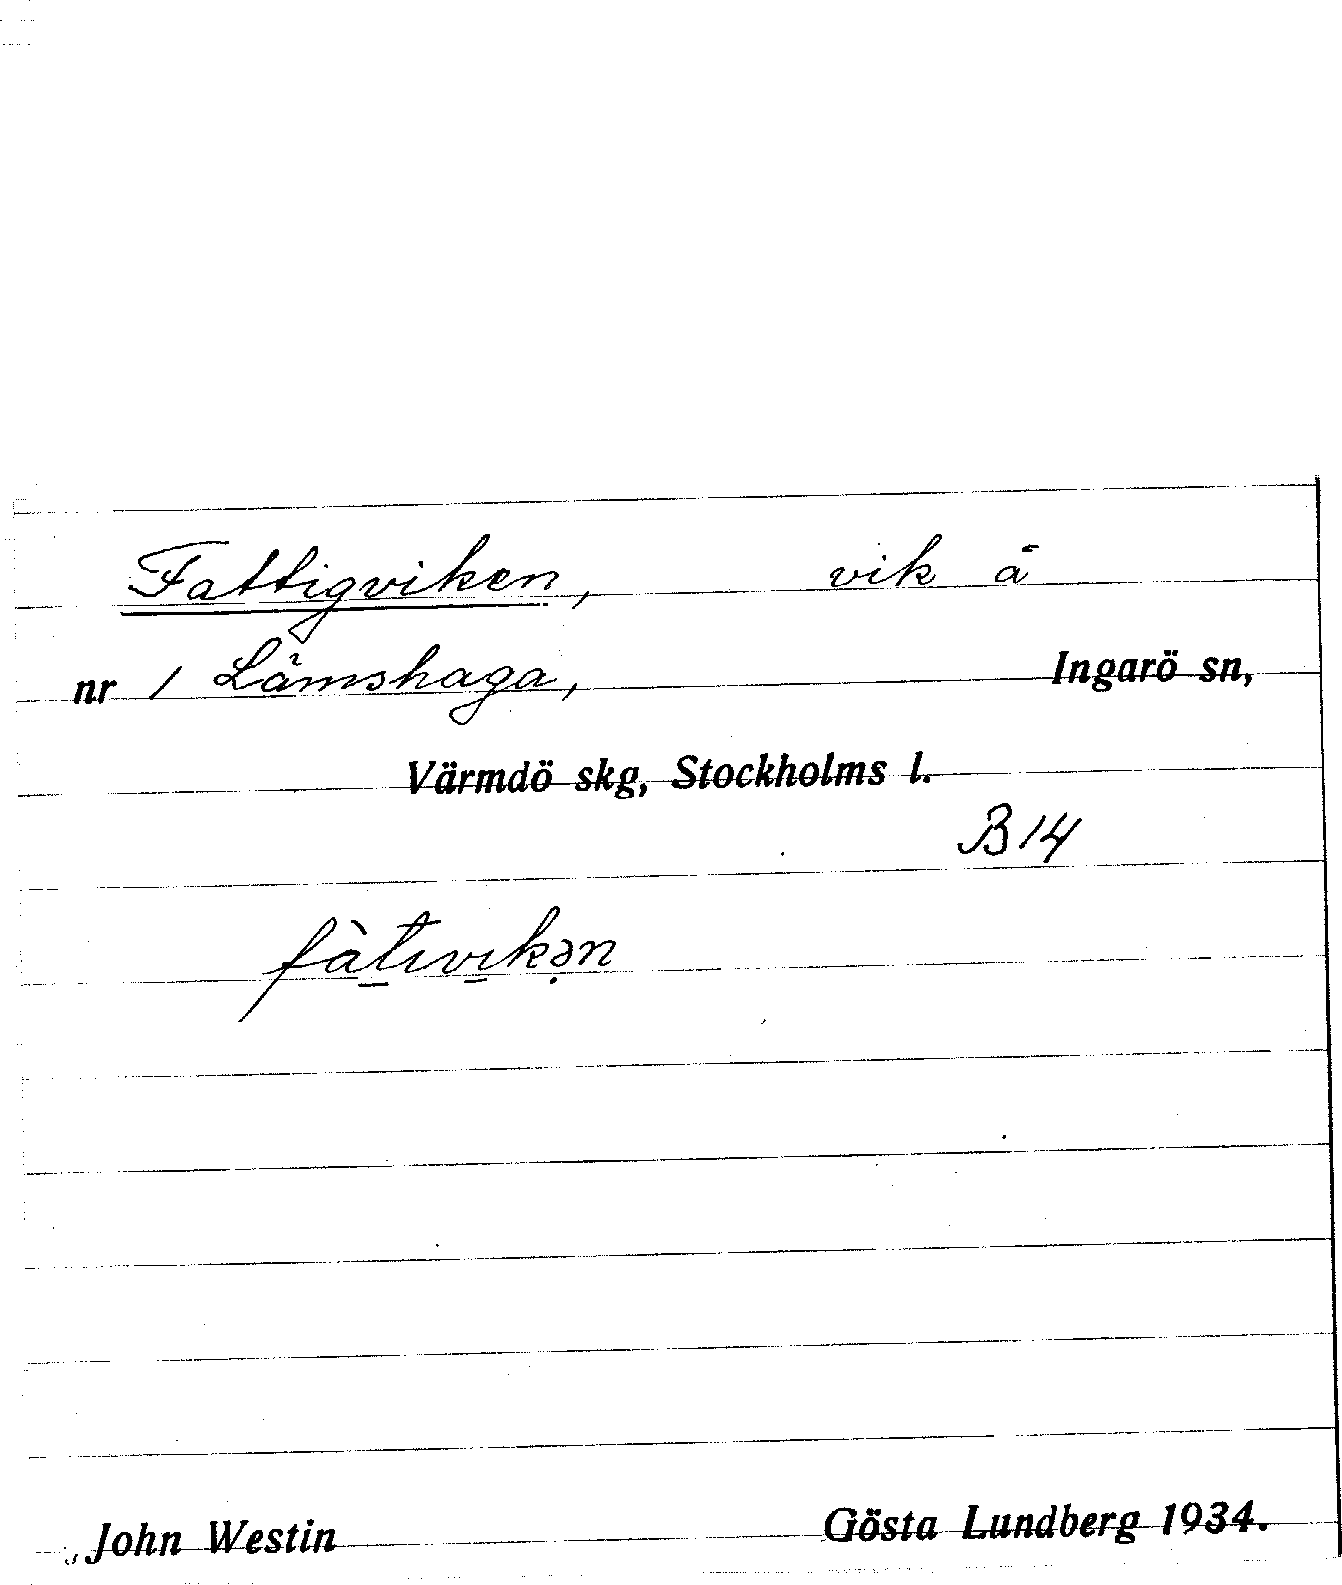 Fattigviken, vik å
nr 1 Låmshaga, Ingarö sn,
Värmdö skg, Stockholms l.
B 14
fàt̠ɪvɪ̠kə̣n
John Westin Gösta Lundberg 1934.